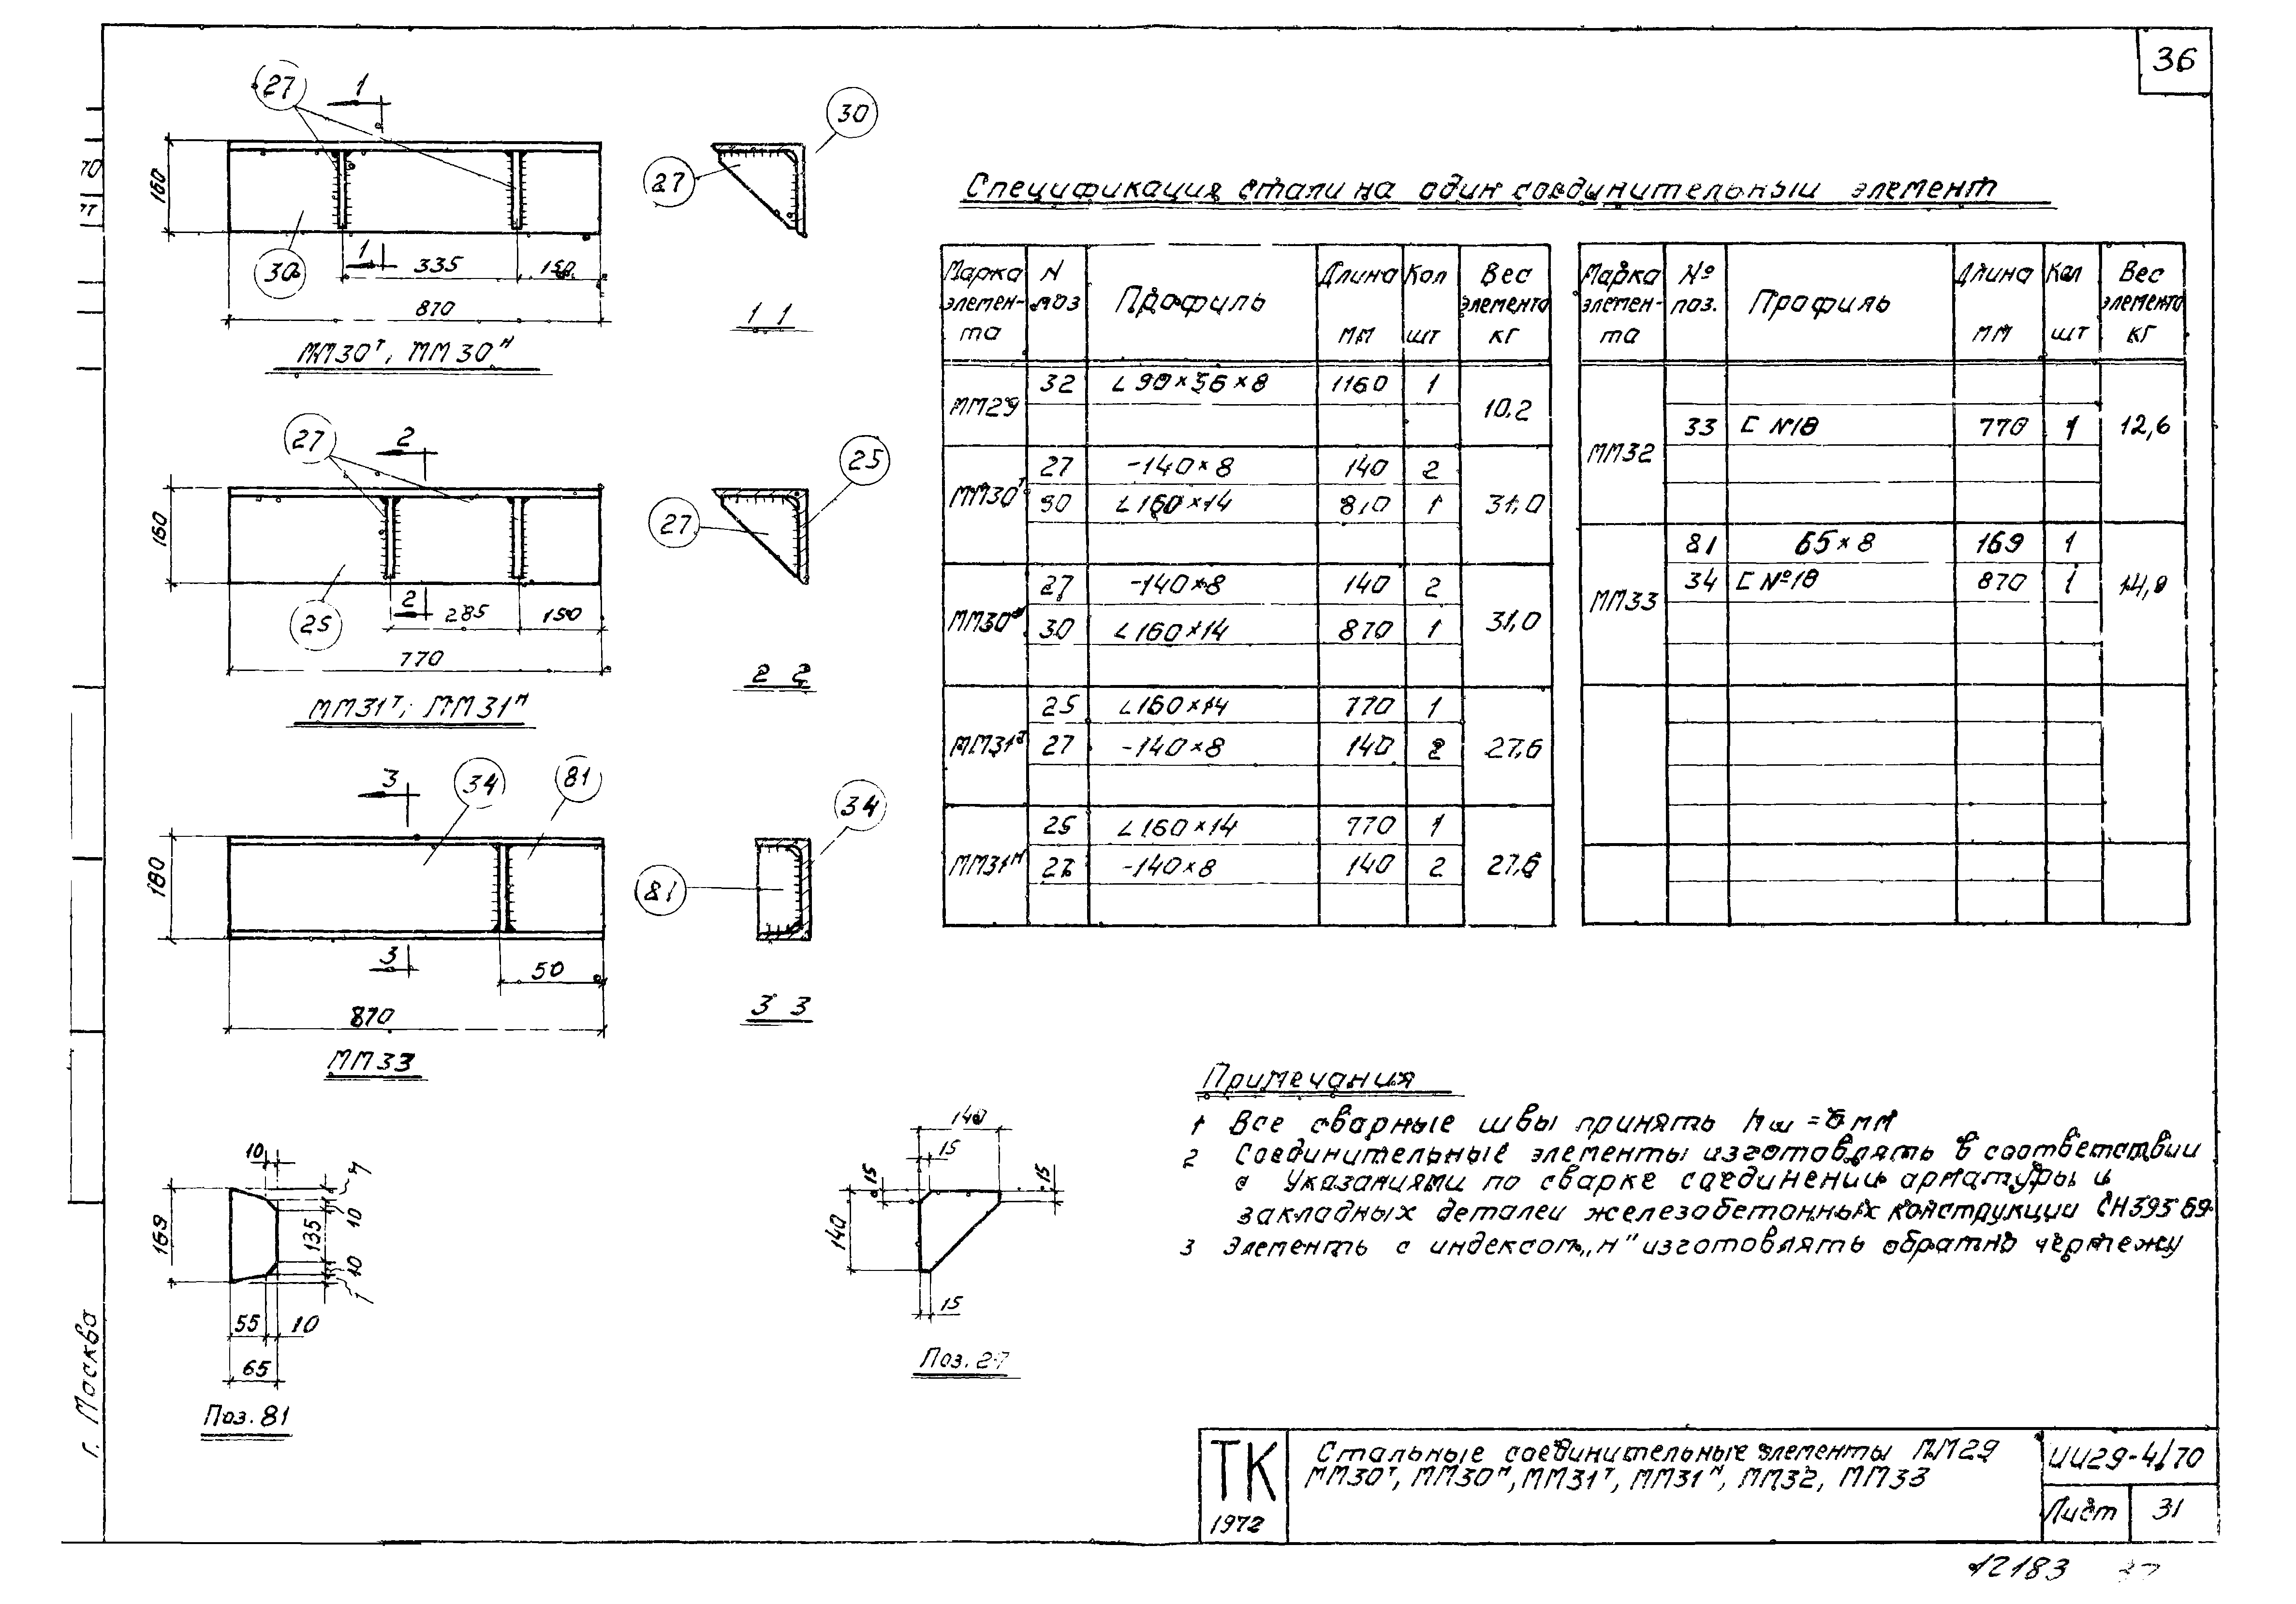 36
27
1
30
27
160
30
1
335
150
870
1 1
ММ30т, ММ30н
27
2
25
27
160
25
2
285
150
770
2 2
ММ31т; ММ31н
3
34
81
34
81
180
3
50
870
3 3
ММ33
10
7
10
135
10
7
169
55
10
65
Поз. 81
140
15
15
15
140
15
Поз. 27
Спецификация стали на один соединительный элемент
Марка элемен-та | N поз | Профиль | Длина мм | Кол шт | Вес элемента кг
ММ29 | 32 | L 90×56×8 | 1160 | 1 | 10.2
ММ30т | 27 | -140×8 | 140 | 2 | 31,0
30 | L160×14 | 870 | 1
ММ30н | 27 | -140×8 | 140 | 2 | 31,0
30 | L160×14 | 870 | 1
ММ31т | 25 | L160×14 | 770 | 1 | 27,6
27 | -140×8 | 140 | 2
ММ31н | 25 | L160×14 | 770 | 1 | 27,6
27 | -140×8 | 140 | 2
Марка элемен-та | № поз. | Профиль | Длина мм | Кол шт | Вес элемента кг
ММ32 | 33 | [ №18 | 770 | 1 | 12,6
ММ33 | 81 | 65×8 | 169 | 1
34 | [ №18 | 870 | 1
Примечания
1 Все сварные швы принять hш =6 мм
2 Соединительные элементы изготовлять в соответствии
с Указаниями по сварке соединений арматуры и
закладных деталей железобетонных конструкций СН393 69
3 Элементы с индексом „н" изготовлять обратно чертежу
г. Москва
ТК
1972
Стальные соединительные элементы ММ29
ММ30т, ММ30н, ММ31т, ММ31н, ММ32, ММ33
ИИ29-4/70
Лист 31
12183 37